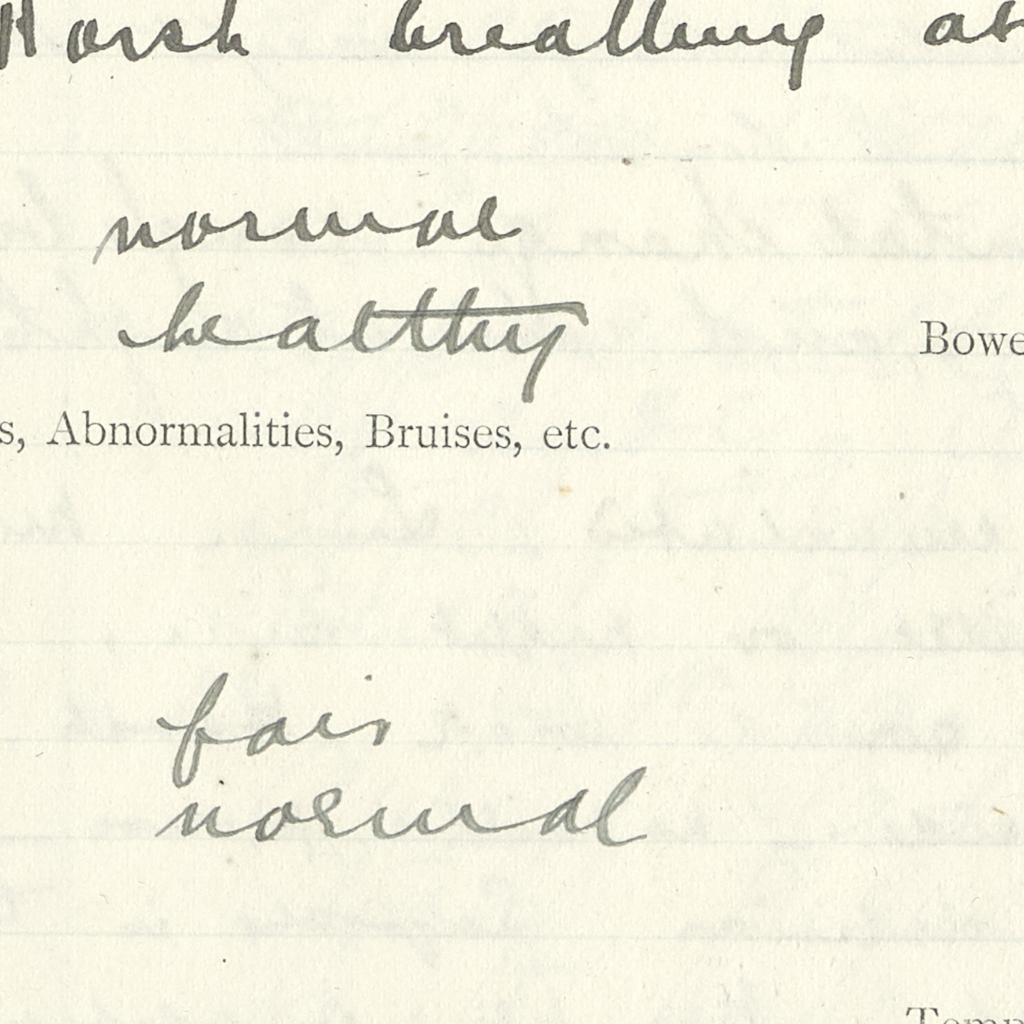 Harsh breathing at
normal
healthy
Bowe
s, Abnormalities, Bruises, etc.
fair
normal
Temp